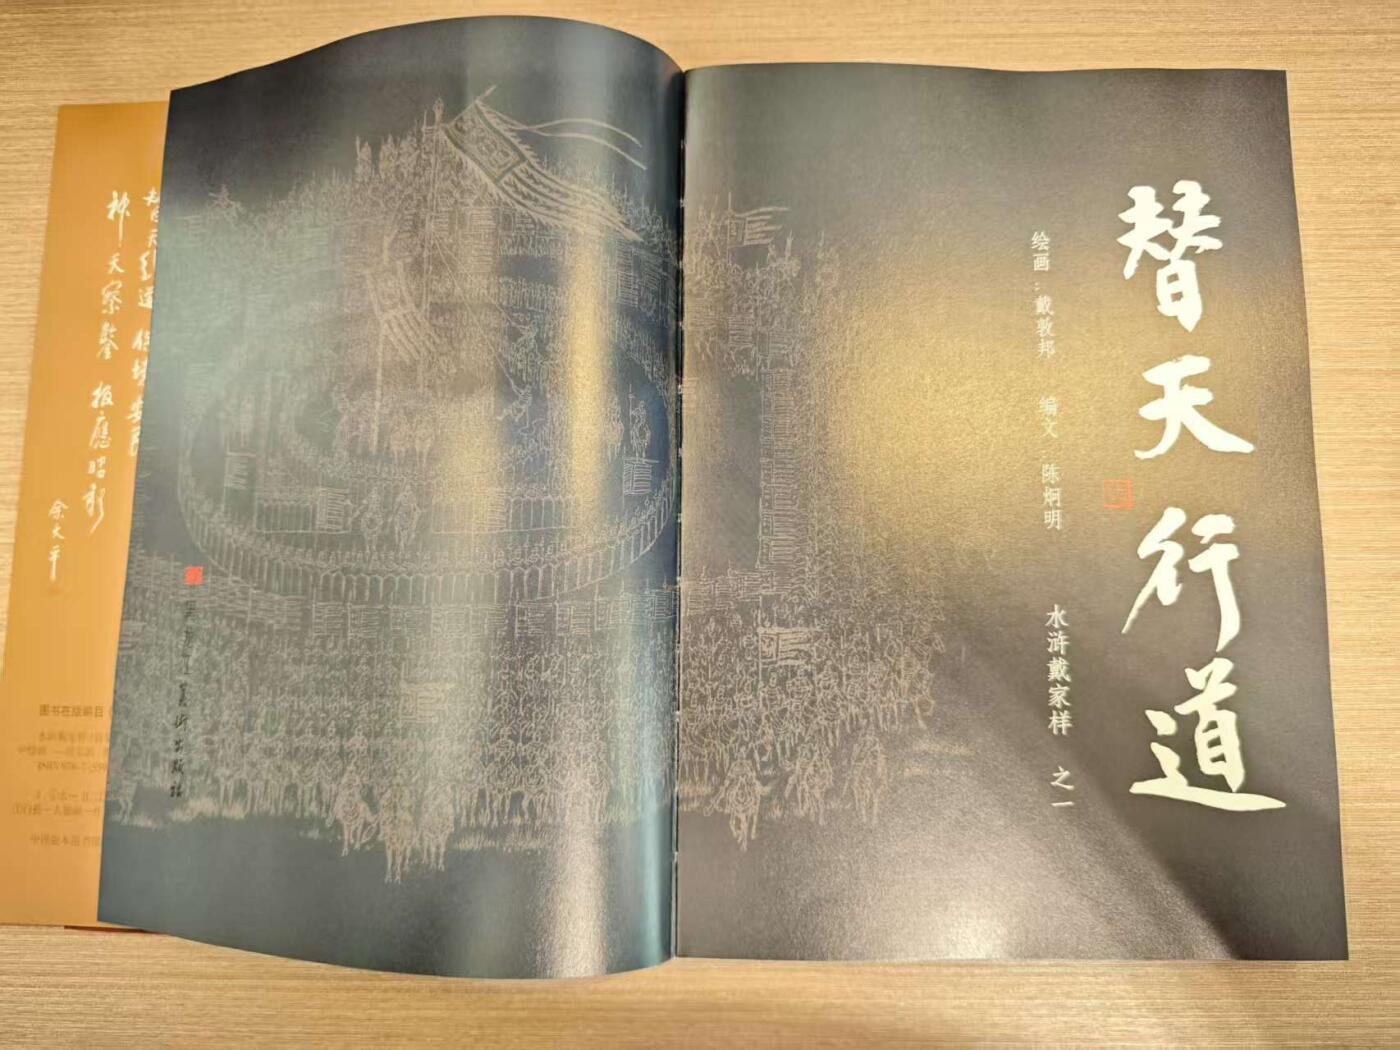 替天行道
绘画：戴敦邦 编文：陈炯明
水浒戴家样 之一
美术出版社
替天行道 保境安民
神天察鉴 报應昭彰
余大平
图书在版编目
ISBN 978-7-